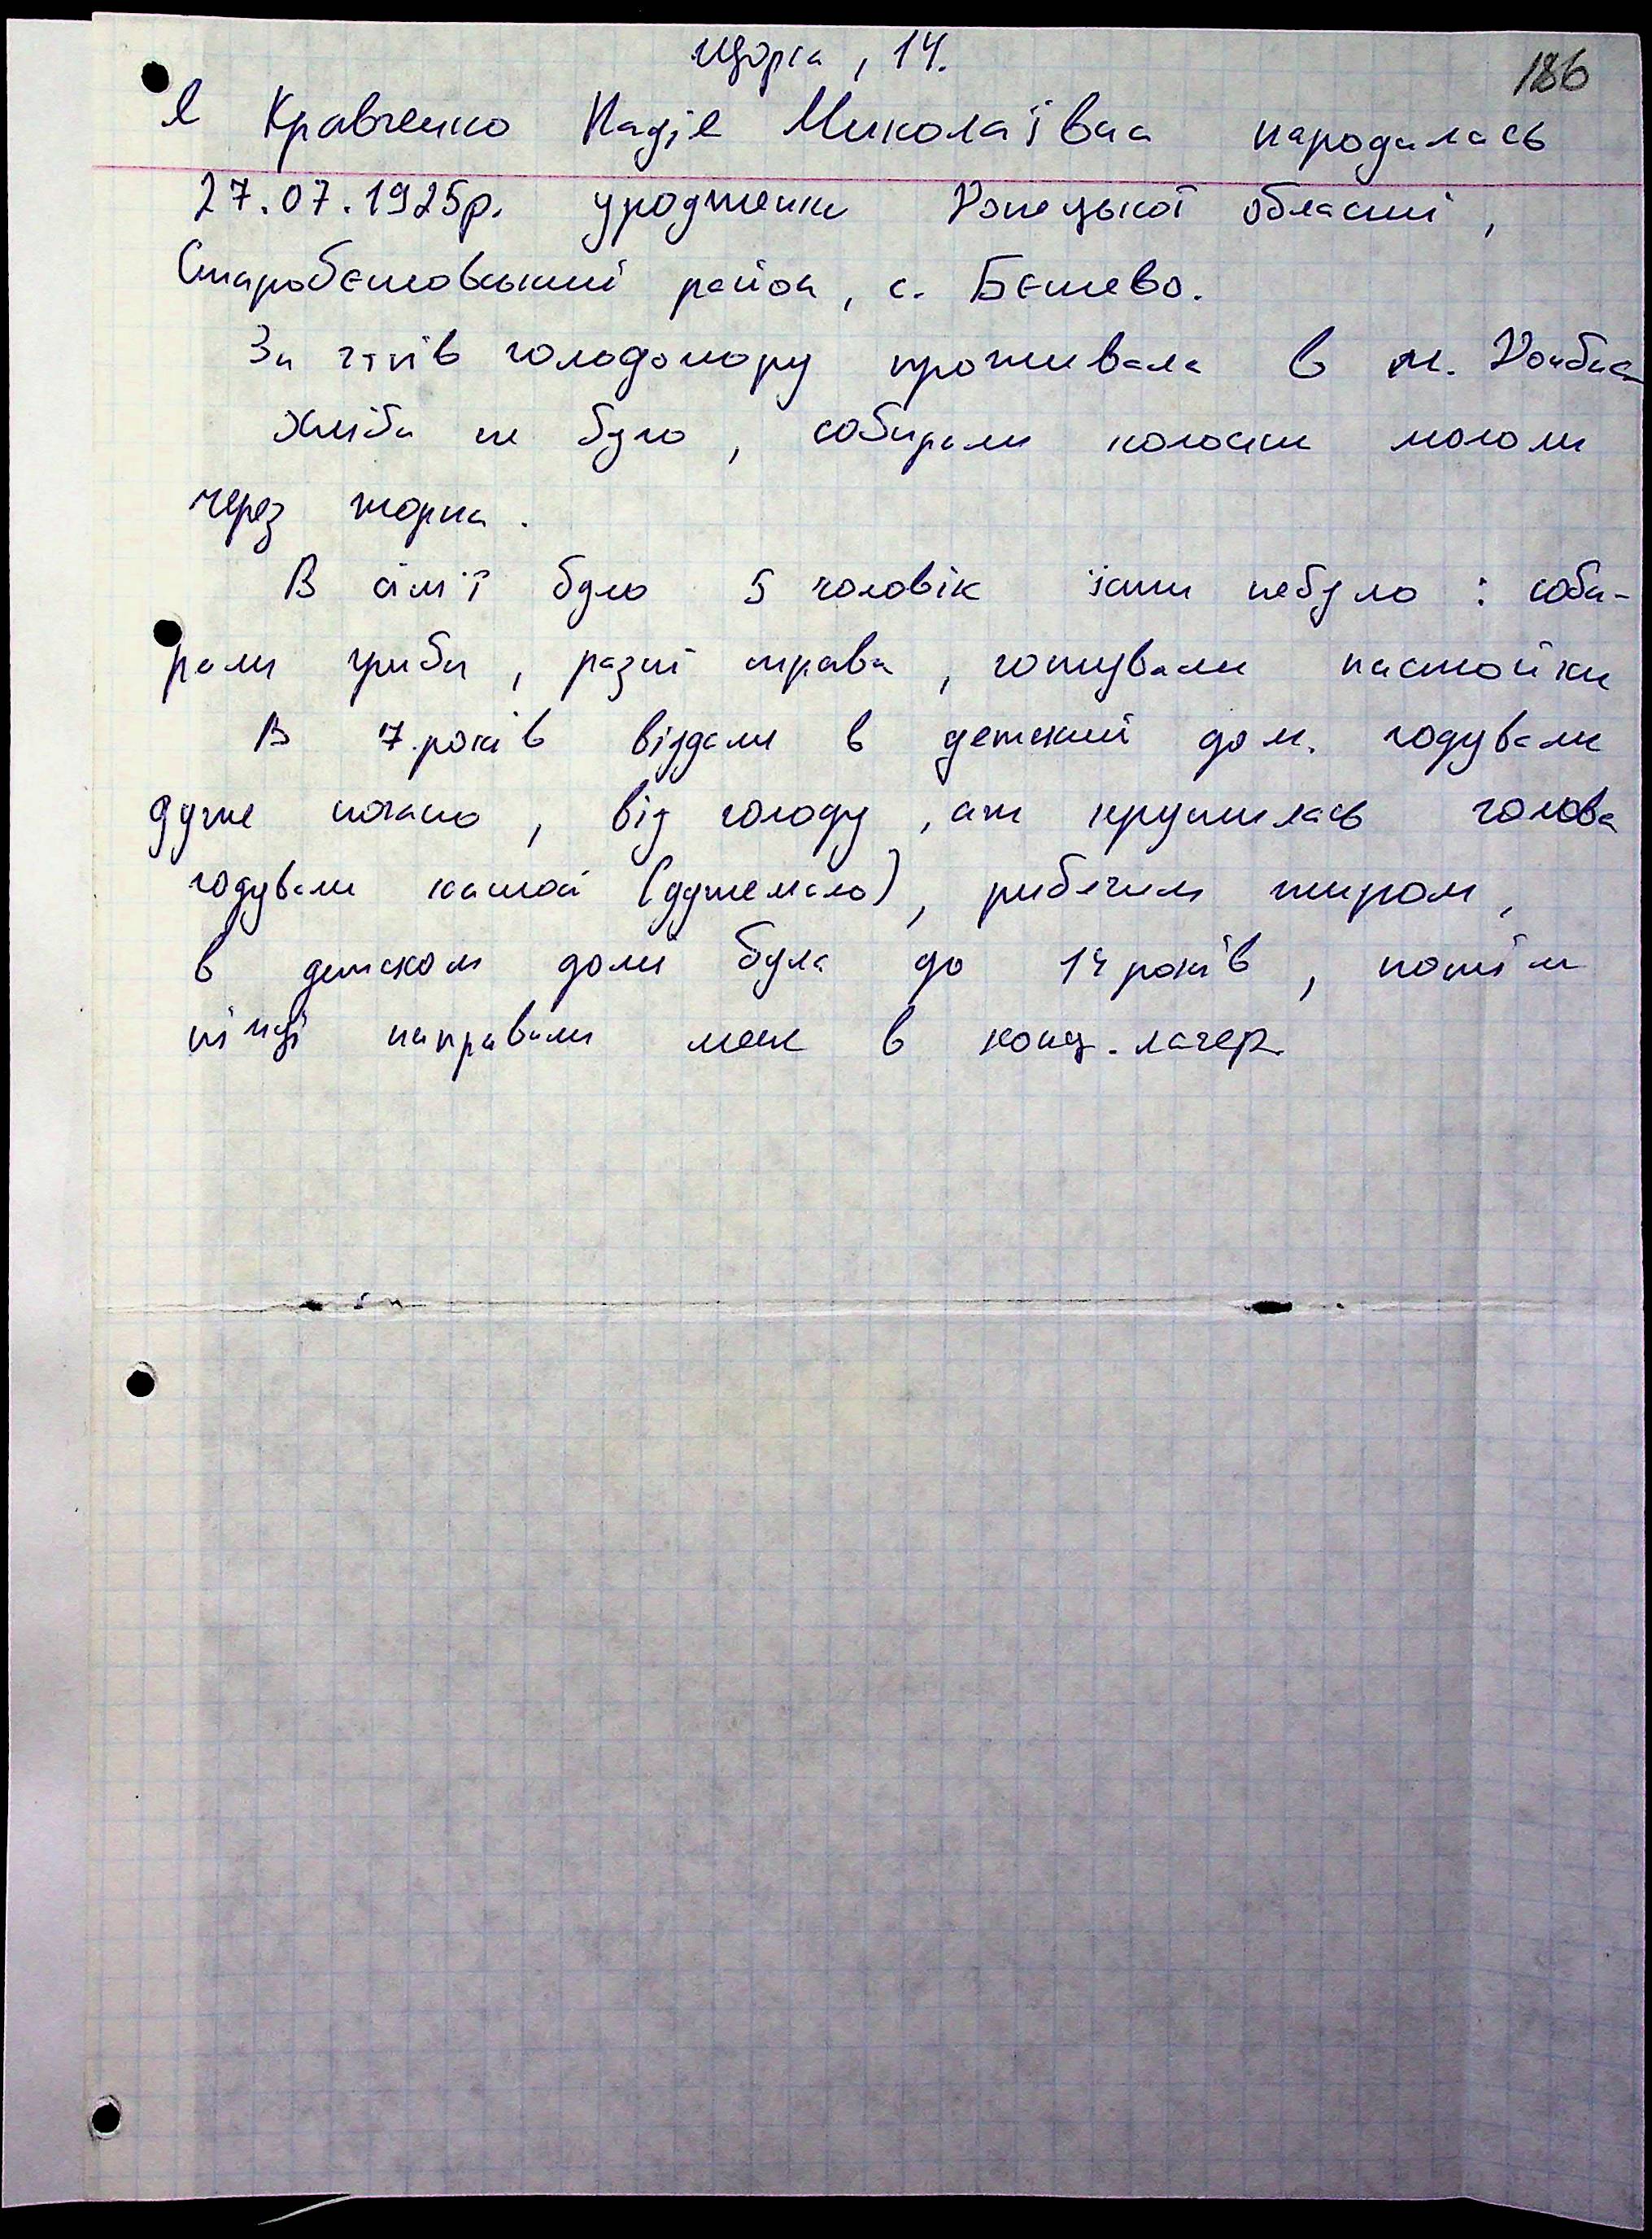 Щорса, 14.
186
Я Кравченко Надія Миколаївна народилась
27.07.1925р. уродженка Донецької області,
Старобєшовський район, с. Бєшево.
За часів голодомору проживала в м. Донбас
Хліба не було, собирали колоски мололи
через жорна.
В сім'ї було 5 чоловік їсти небуло: соби-
рали гриби, разні трави, готували настойки
В 7 років віддали в детский дом. годували
дуже погано, від голоду, аж кружилась голова
годували кашой (дуже мало), рибячим жиром,
в детском домі була до 14 років, потім
німці направили мене в конц. лагер.